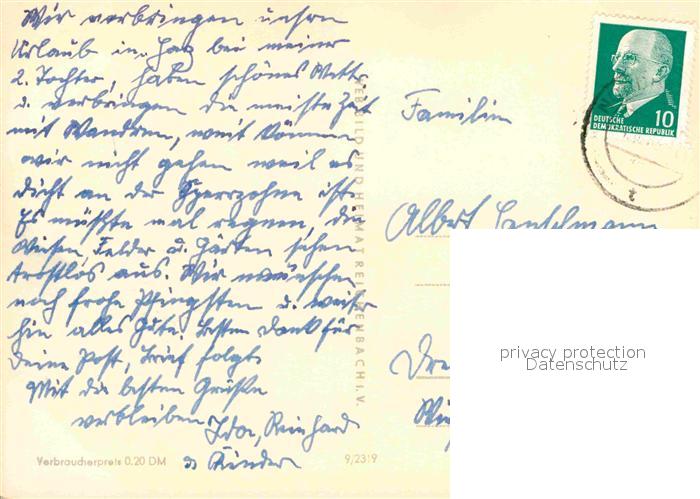 Wir verbringen unsren
Urlaub im Harz bei meiner
2. Tochter, haben schönes Wett.
u. verbringen die meiste Zeit
mit Wandern, weit können
wir nicht gehen weil es
dicht an der Sperrzohne ist.
Es müßte mal regnen, die
Wiesen, Felder u. Gärten sehen
trostlos aus. Wir wünschen
noch frohe Pfingsten u. weiter
hin alles Gute. Besten Dank für
Deine Post, Brief folgt.
Mit die besten Grüße
verbleiben Ida, Reinhard
u. Kinder
Verbraucherpreis 0.20 DM
9/2319
BILD UND HEIMAT REICHENBACH I. V.
10
DEUTSCHE
DEMOKRATISCHE REPUBLIK
Familie
Albert
privacy protection
Datenschutz